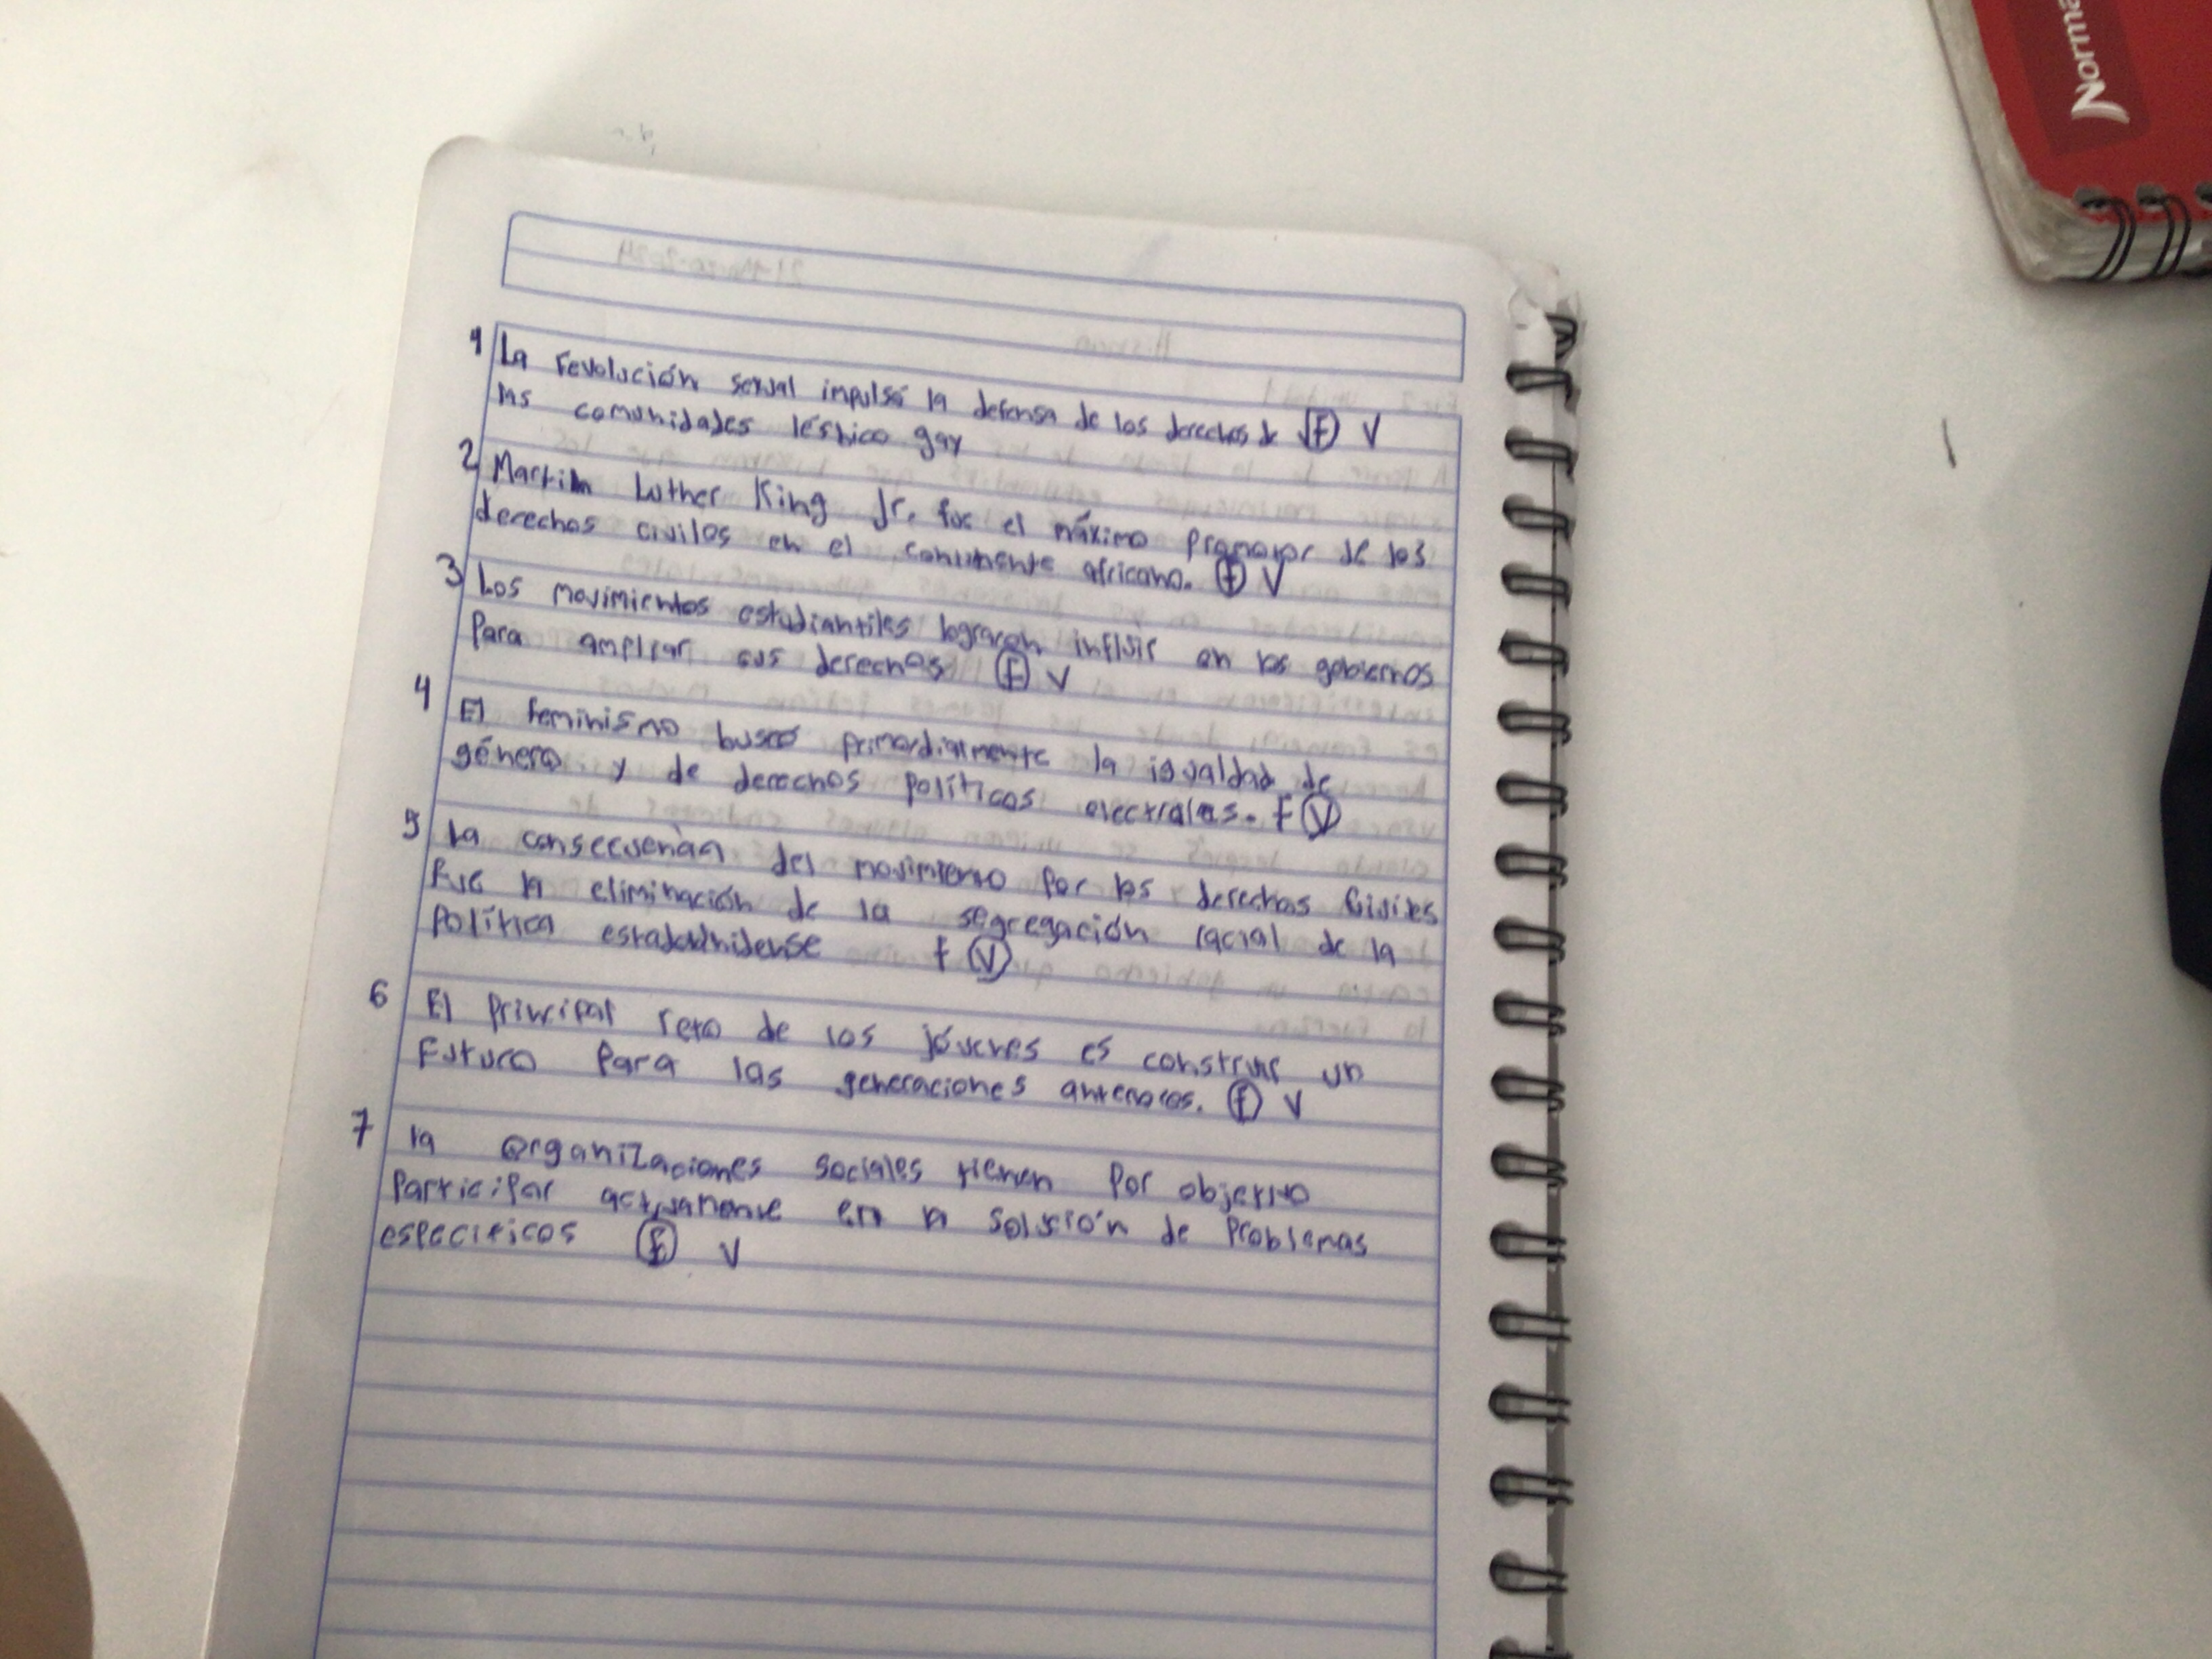 Norma
1 La revolución sexual impulsó la defensa de los derechos de F V
las comunidades lésbico gay
2 Martin Luther King Jr. fue el máximo promotor de los
derechos civiles en el continente africano. F V
3 Los movimientos estudiantiles lograron influir en los gobiernos
Para ampliar sus derechos F V
4 El feminismo buscó primordialmente la igualdad de
género y de derechos políticos electrales. F V
5 La consecuencia del movimiento por los derechos Civiles
Fue la eliminación de la segregación racial de la
Política estadounidense f V
6 El Principal reto de los jóvenes es construir un
Futuro Para las generaciones anteriores. F V
7 la organizaciones sociales tienen Por objetivo
Participar activamente en la solución de Problemas
especificos F V